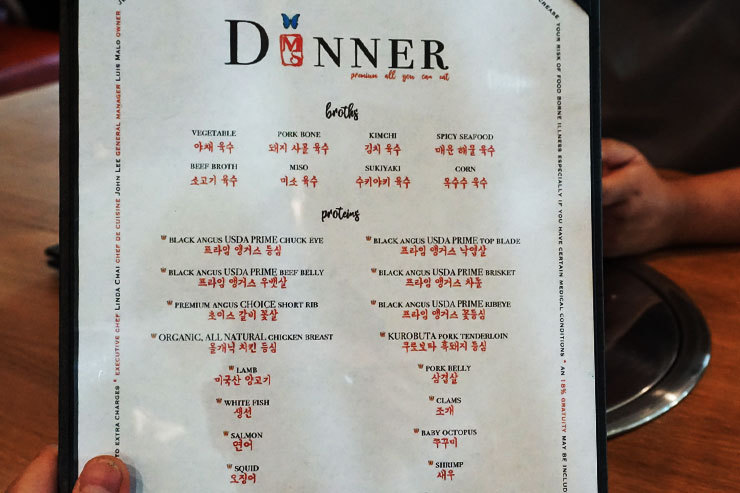 DINNER
premium all you can eat
broths
VEGETABLE PORK BONE KIMCHI SPICY SEAFOOD
야채 육수 돼지 사골 육수 김치 육수 매운 해물 육수
BEEF BROTH MISO SUKIYAKI CORN
소고기 육수 미소 육수 수키야키 육수 옥수수 육수
proteins
BLACK ANGUS USDA PRIME CHUCK EYE BLACK ANGUS USDA PRIME TOP BLADE
프라임 앵거스 등심 프라임 앵거스 낙엽살
BLACK ANGUS USDA PRIME BEEF BELLY BLACK ANGUS USDA PRIME BRISKET
프라임 앵거스 우뱃살 프라임 앵거스 차돌
PREMIUM ANGUS CHOICE SHORT RIB BLACK ANGUS USDA PRIME RIBEYE
초이스 갈비 꽃살 프라임 앵거스 꽃등심
ORGANIC, ALL NATURAL CHICKEN BREAST KUROBUTA PORK TENDERLOIN
올개닉 치킨 등심 쿠로부타 흑돼지 등심
LAMB PORK BELLY
미국산 양고기 삼겹살
WHITE FISH CLAMS
생선 조개
SALMON BABY OCTOPUS
연어 쭈꾸미
SQUID SHRIMP
오징어 새우
TO EXTRA CHARGES * EXECUTIVE CHEF LINDA CHAI CHEF DE CUISINE JOHN LEE GENERAL MANAGER LUIS MALO OWNER
INCREASE YOUR RISK OF FOOD BORNE ILLNESS ESPECIALLY IF YOU HAVE CERTAIN MEDICAL CONDITIONS * AN 18% GRATUITY MAY BE